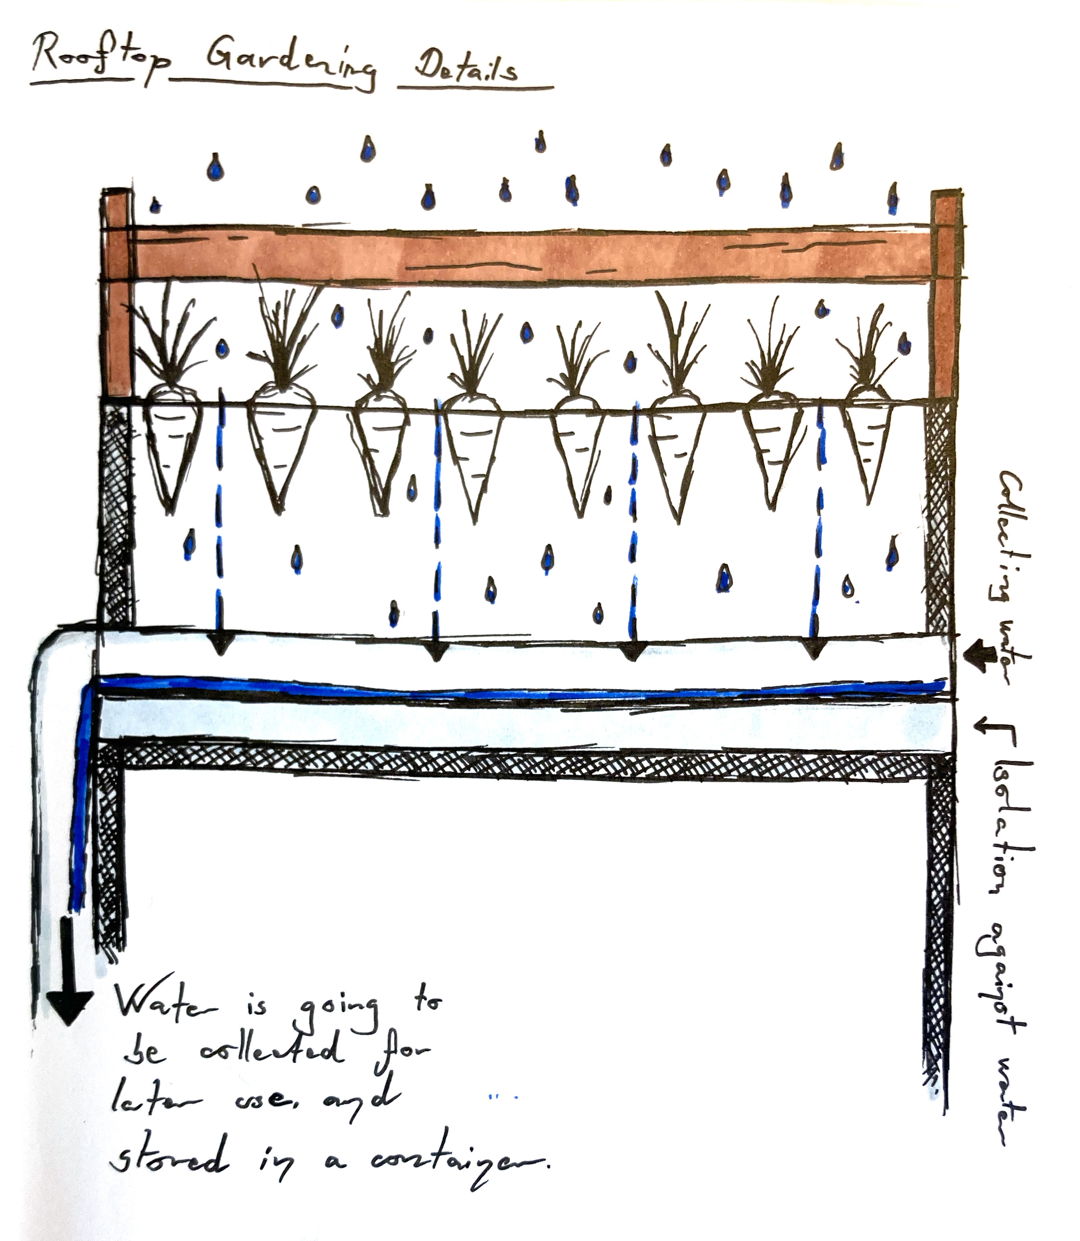 Rooftop Gardening Details
Collecting water
Isolation against water
Water is going to
be collected for
later use, and
stored in a container.